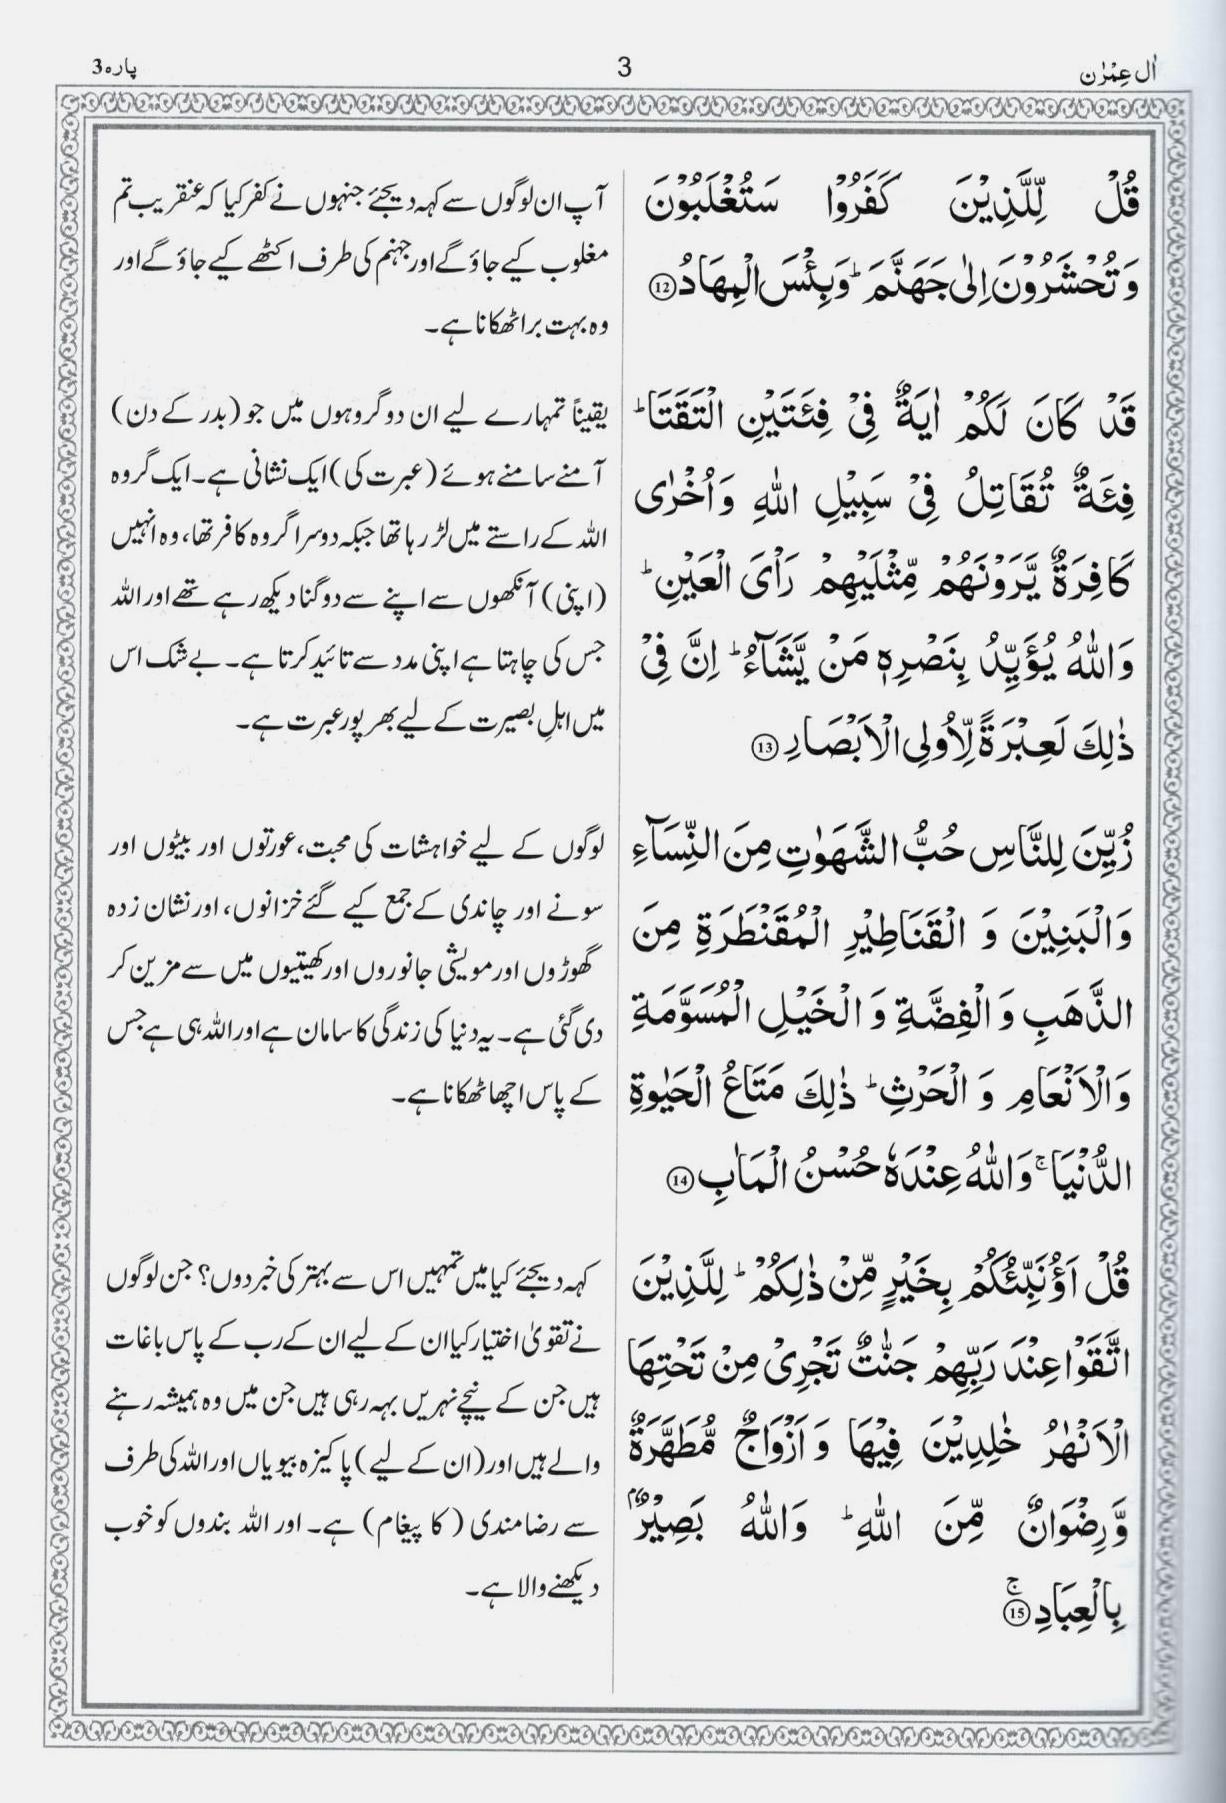 اٰلِ عِمْرٰن
3
پارہ 3
قُلْ لِّلَّذِيْنَ كَفَرُوْا سَتُغْلَبُوْنَ
وَتُحْشَرُوْنَ اِلٰى جَهَنَّمَ ؕ وَبِئْسَ الْمِهَادُ ⑫
آپ ان لوگوں سے کہہ دیجئے جنہوں نے کفر کیا کہ عنقریب تم
مغلوب کیے جاؤ گے اور جہنم کی طرف اکٹھے کیے جاؤ گے اور
وہ بہت برا ٹھکانا ہے۔
قَدْ كَانَ لَكُمْ اٰيَةٌ فِيْ فِئَتَيْنِ الْتَقَتَا ؕ
فِئَةٌ تُقَاتِلُ فِيْ سَبِيْلِ اللّٰهِ وَاُخْرٰى
كَافِرَةٌ يَّرَوْنَهُمْ مِّثْلَيْهِمْ رَاْيَ الْعَيْنِ ؕ
وَاللّٰهُ يُؤَيِّدُ بِنَصْرِهٖ مَنْ يَّشَآءُ ؕ اِنَّ فِيْ
ذٰلِكَ لَعِبْرَةً لِّاُولِي الْاَبْصَارِ ⑬
یقیناً تمہارے لیے ان دو گروہوں میں جو (بدر کے دن)
آمنے سامنے ہوئے (عبرت کی) ایک نشانی ہے۔ ایک گروہ
اللہ کے راستے میں لڑ رہا تھا جبکہ دوسرا گروہ کافر تھا، وہ انہیں
(اپنی) آنکھوں سے اپنے سے دوگنا دیکھ رہے تھے اور اللہ
جس کی چاہتا ہے اپنی مدد سے تائید کرتا ہے۔ بے شک اس
میں اہلِ بصیرت کے لیے بھرپور عبرت ہے۔
زُيِّنَ لِلنَّاسِ حُبُّ الشَّهَوٰتِ مِنَ النِّسَآءِ
وَالْبَنِيْنَ وَ الْقَنَاطِيْرِ الْمُقَنْطَرَةِ مِنَ
الذَّهَبِ وَ الْفِضَّةِ وَ الْخَيْلِ الْمُسَوَّمَةِ
وَالْاَنْعَامِ وَ الْحَرْثِ ؕ ذٰلِكَ مَتَاعُ الْحَيٰوةِ
الدُّنْيَا ۚ وَاللّٰهُ عِنْدَهٗ حُسْنُ الْمَاٰبِ ⑭
لوگوں کے لیے خواہشات کی محبت، عورتوں اور بیٹوں اور
سونے اور چاندی کے جمع کیے گئے خزانوں، اور نشان زدہ
گھوڑوں اور مویشی جانوروں اور کھیتیوں میں سے مزین کر
دی گئی ہے۔ یہ دنیا کی زندگی کا سامان ہے اور اللہ ہی ہے جس
کے پاس اچھا ٹھکانا ہے۔
قُلْ اَؤُنَبِّئُكُمْ بِخَيْرٍ مِّنْ ذٰلِكُمْ ؕ لِلَّذِيْنَ
اتَّقَوْا عِنْدَ رَبِّهِمْ جَنّٰتٌ تَجْرِيْ مِنْ تَحْتِهَا
الْاَنْهٰرُ خٰلِدِيْنَ فِيْهَا وَ اَزْوَاجٌ مُّطَهَّرَةٌ
وَّرِضْوَانٌ مِّنَ اللّٰهِ ؕ وَاللّٰهُ بَصِيْرٌۢ
بِالْعِبَادِ ⑮ ۚ
کہہ دیجئے کیا میں تمہیں اس سے بہتر کی خبر دوں؟ جن لوگوں
نے تقویٰ اختیار کیا ان کے لیے ان کے رب کے پاس باغات
ہیں جن کے نیچے نہریں بہہ رہی ہیں جن میں وہ ہمیشہ رہنے
والے ہیں اور (ان کے لیے) پاکیزہ بیویاں اور اللہ کی طرف
سے رضامندی (کا پیغام) ہے۔ اور اللہ بندوں کو خوب
دیکھنے والا ہے۔